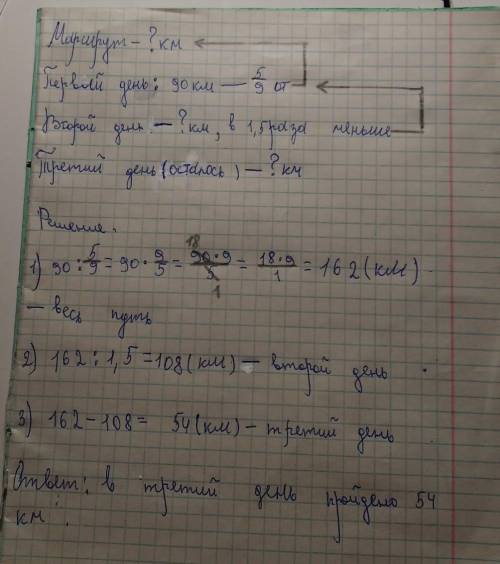 Маршрут - ? км
Первый день: 90 км — 5/9 от
Второй день - ? км, в 1,5 раза меньше
Третий день (осталось) - ? км
Решение.
1) 90 : 5/9 = 90 · 9/5 = 90·9/5 = 18·9/1 = 162 (км)
— весь путь
2) 162 : 1,5 = 108 (км) — второй день
3) 162 - 108 = 54 (км) - третий день
Ответ: в третий день пройдено 54
км.